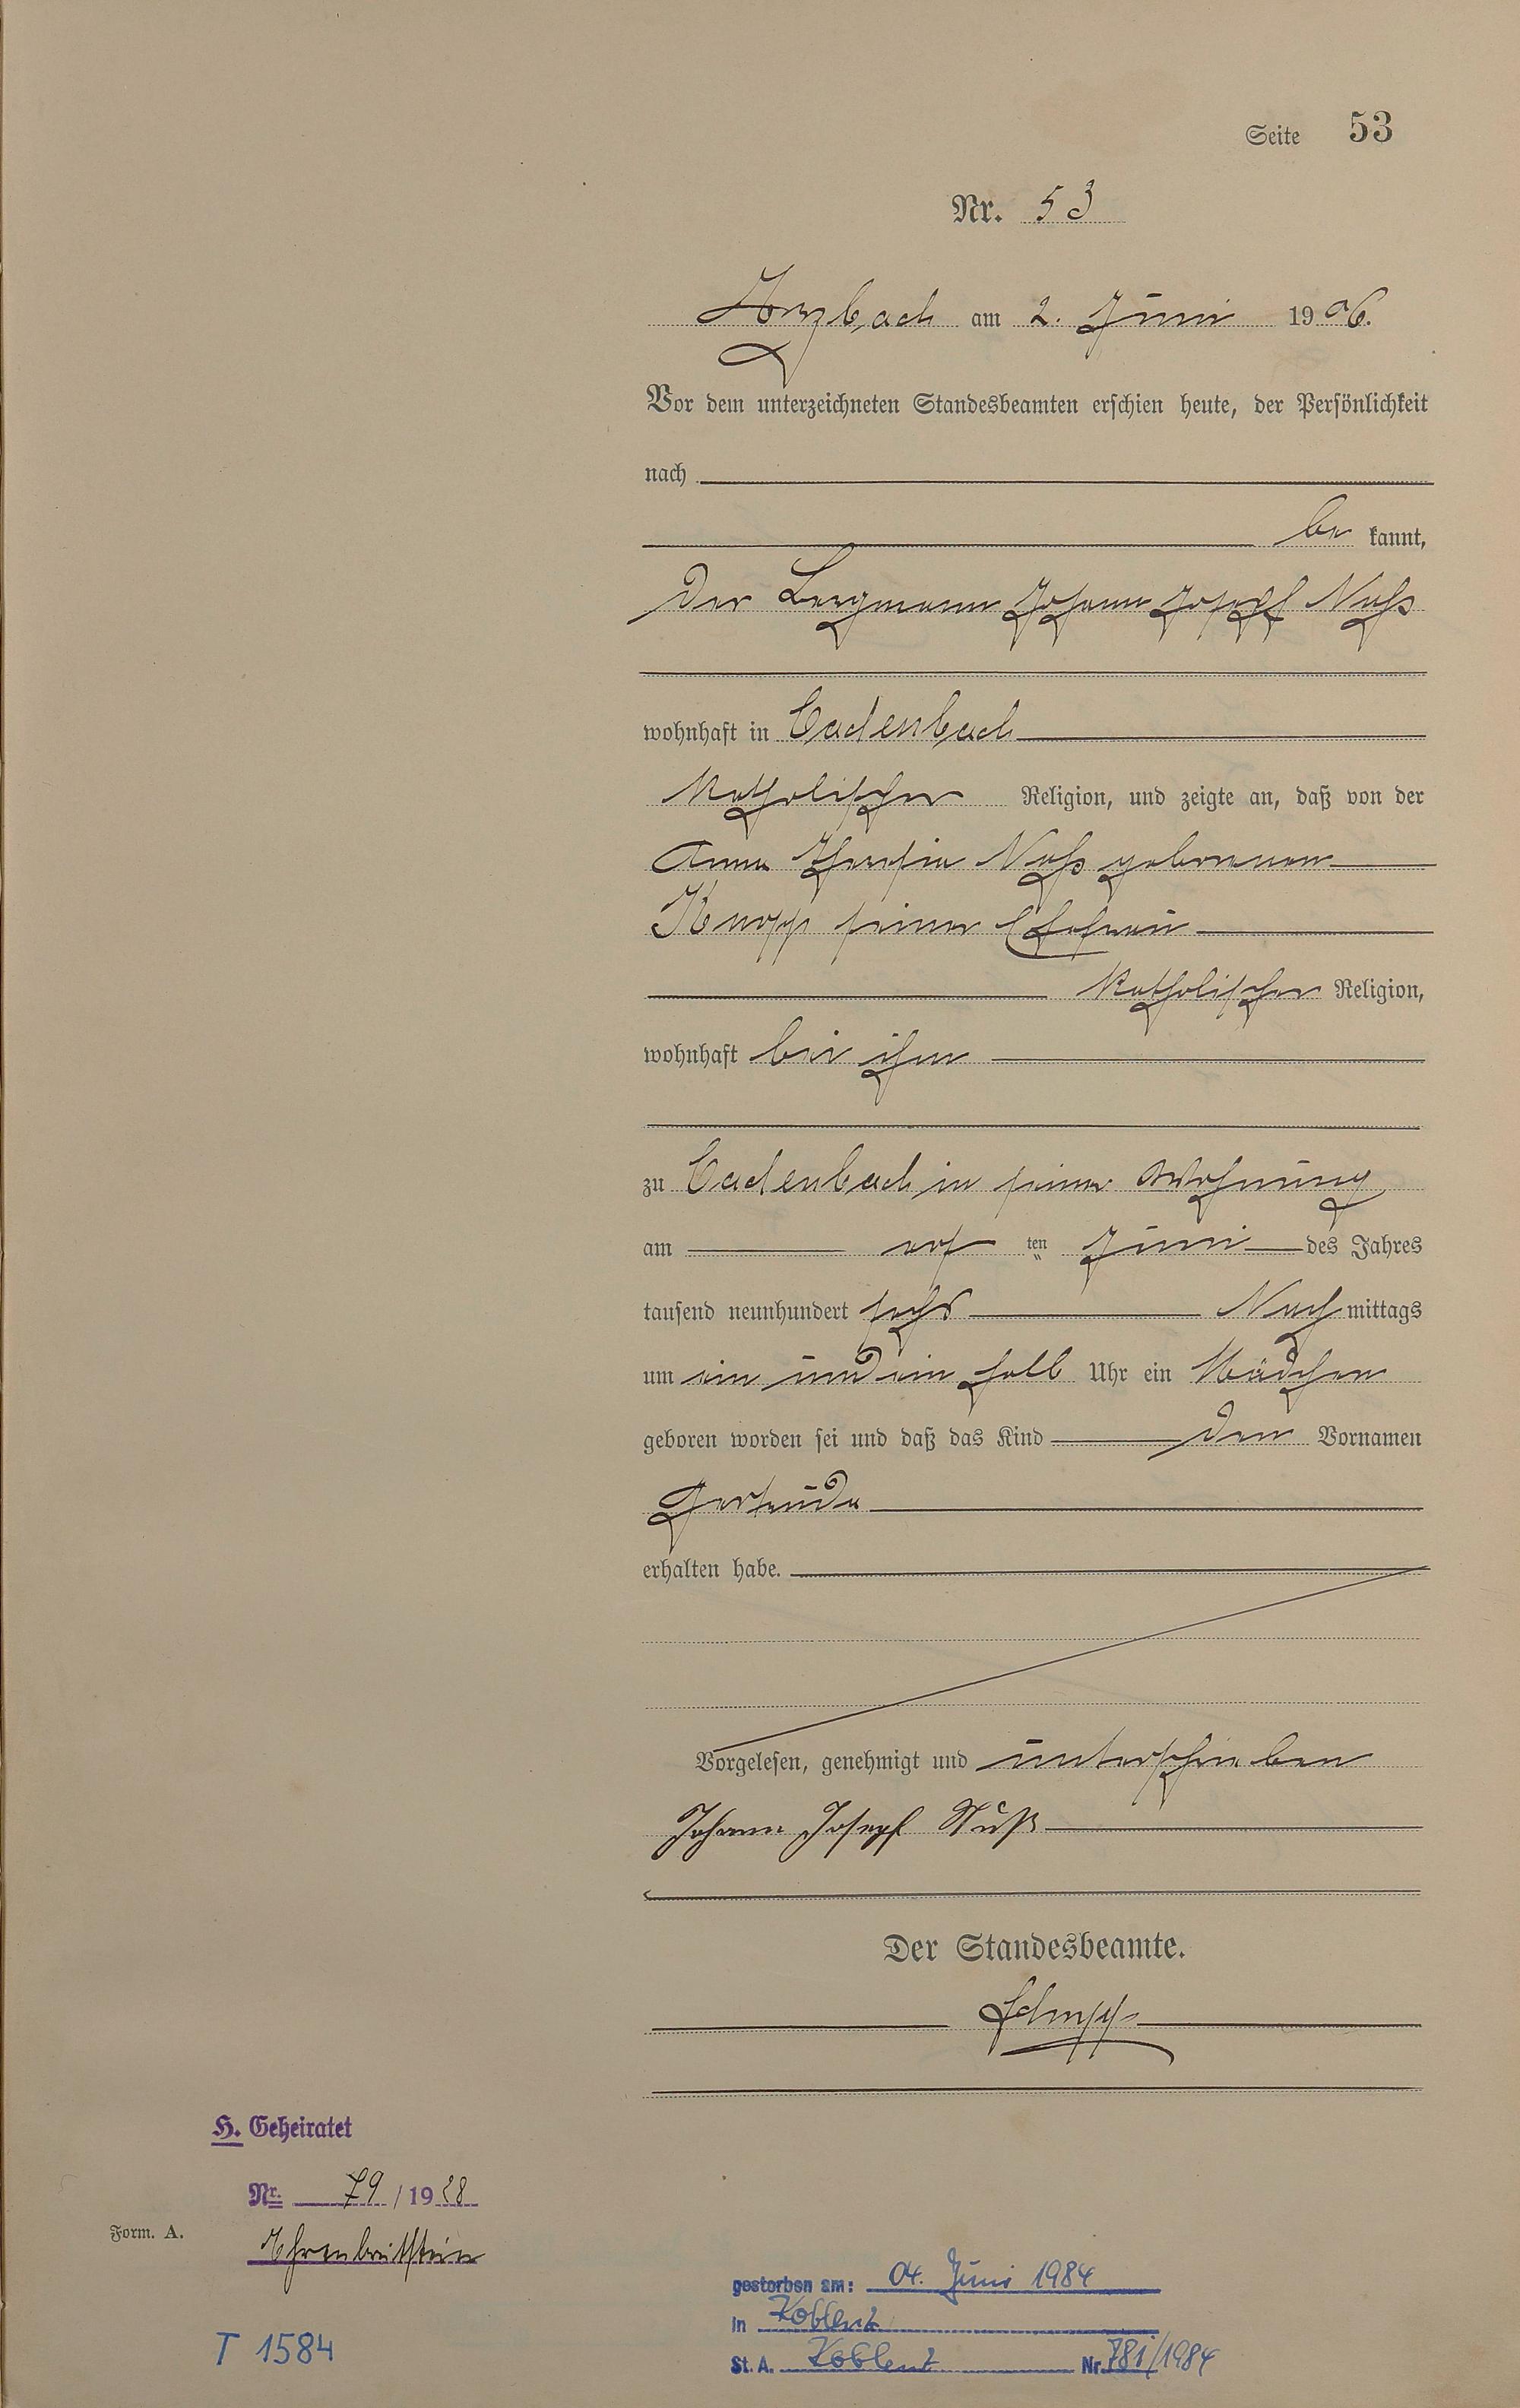 Seite 53
Nr. 53
Arzbach am 2. Juni 1906.
Vor dem unterzeichneten Standesbeamten erschien heute, der Persönlichkeit
nach
be kannt,
der Bergmann Johann Josepf Nuß
wohnhaft in Cadenbach
katholischer Religion, und zeigte an, daß von der
Anna Theresia Nuß geborenen
Knopp seiner Ehefrau
katholischer Religion,
wohnhaft bei ihm
zu Cadenbach in seiner Wohnung
am ersten Juni des Jahres
tausend neunhundert sechs Nachmittags
um ein und ein halb Uhr ein Mädchen
geboren worden sei und daß das Kind den Vornamen
Gertruda
erhalten habe.
Vorgelesen, genehmigt und unterschrieben
Johann Josepf Nuß
Der Standesbeamte.
H. Geheiratet
Nr. 79/1928
Form. A.
Ehrenbreitstein
gestorben am: 04. Juni 1984
in Koblenz
T 1584
St. A. Koblenz Nr. 781/1984